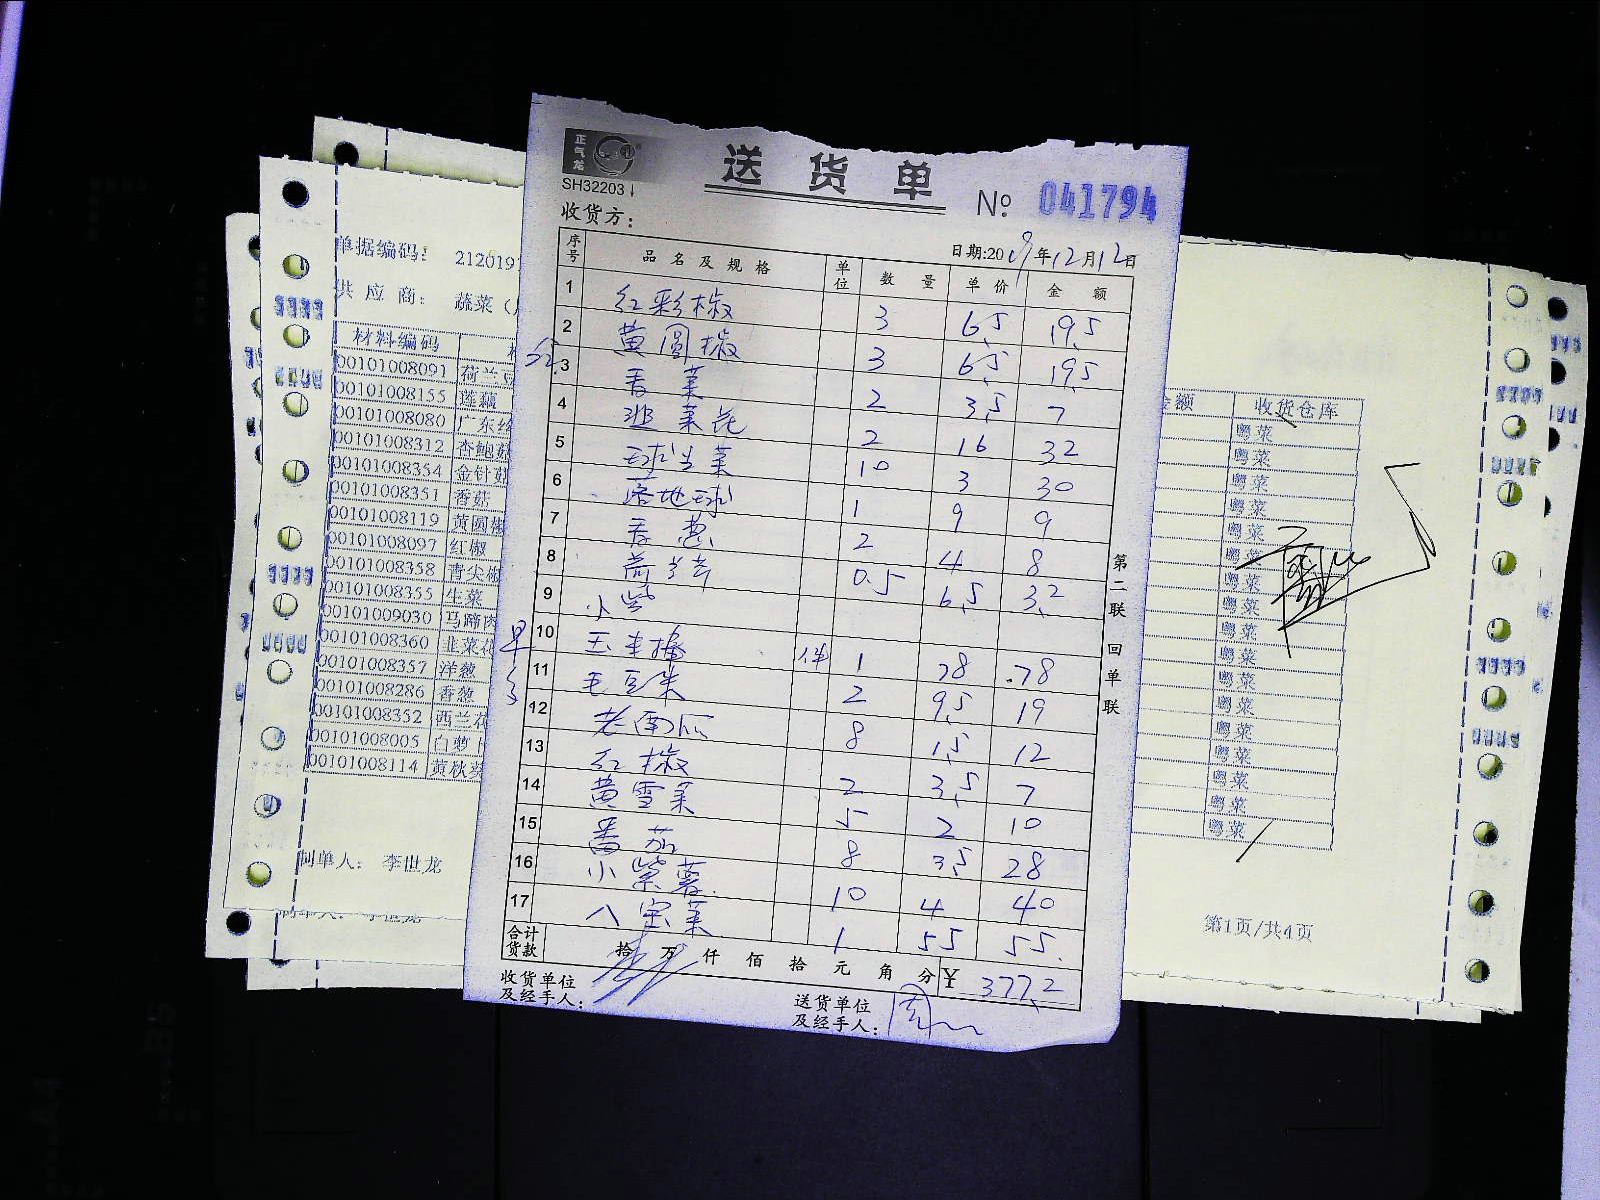 正气龙
送货单
SH32203
№ 041794
收货方：
日期:2019年12月12日
序号 品名及规格 单位 数量 单价 金额
1 红彩椒 3 6.5 19.5
2 黄圆椒 3 6.5 19.5
3 香菜 2 3.5 7
4 韭菜花 2 16 32
5 球生菜 10 3 30
6 落地球 1 9 9
7 香葱 2 4 8
8 0.5 6.5 3.2
9 小紫
10 玉米 件 1 78 78
11 毛豆米 2 9.5 19
12 老南瓜 8 1.5 12
13 红椒 2 3.5 7
14 黄雪菜 5 2 10
15 番茄 8 3.5 28
16 小紫薯 10 4 40
17 八宝菜 1 55 55
合计货款 拾 万 仟 佰 拾 元 角 分 ¥ 377.2
收货单位及经手人：
送货单位及经手人：
第二联 回单联
单据编码： 212019
供应商： 蔬菜（
材料编码
00101008091 荷兰豆
00101008155 莲藕
00101008080 广东
00101008312 杏鲍菇
00101008354 金针菇
00101008351 香菇
00101008119 黄圆椒
00101008097 红椒
00101008358 青尖椒
00101008355 生菜
00101009030 马蹄肉
00101008360 韭菜花
00101008357 洋葱
00101008286 香葱
00101008352 西兰花
00101008005 白萝卜
00101008114 黄秋葵
制单人： 李世龙
金额 收货仓库
粤菜
粤菜
粤菜
粤菜
粤菜
粤菜
粤菜
粤菜
粤菜
粤菜
粤菜
粤菜
粤菜
粤菜
粤菜
粤菜
粤菜
第1页/共4页